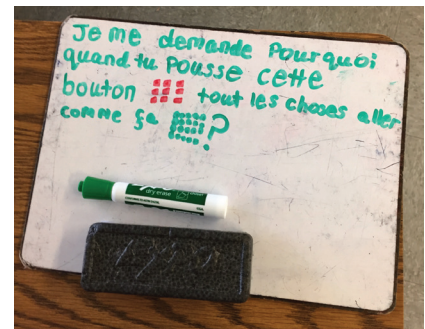 Je me demande Pourquoi
quand tu Pousse cette
bouton tout les choses aller
comme ça ?
dry erase